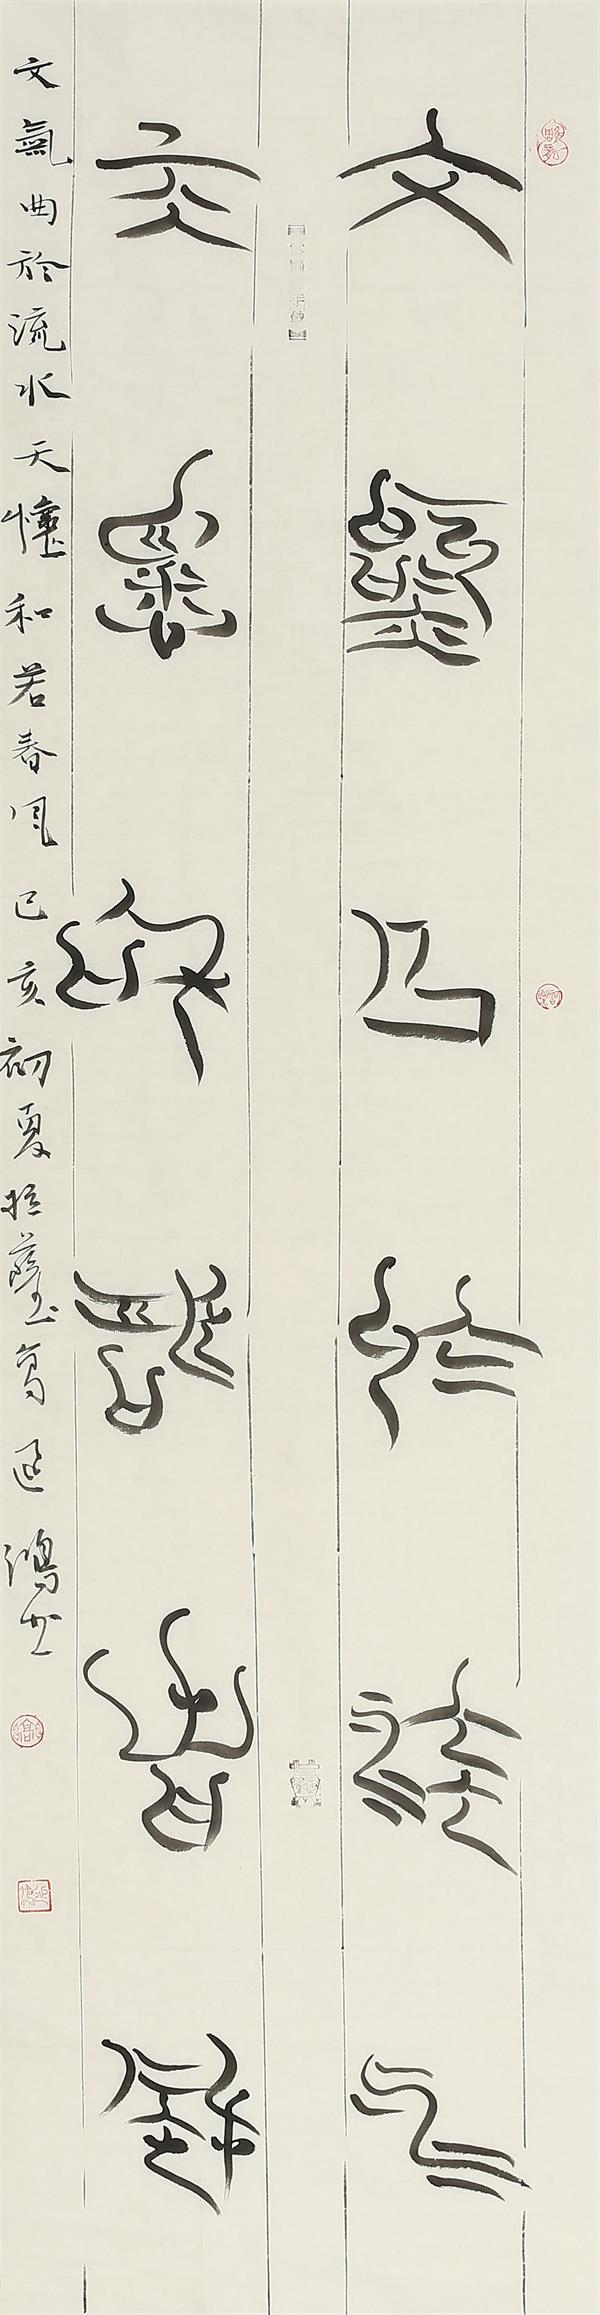 文氣曲於流水
天懷和若春風
文氣曲於流水天懷和若春風己亥初夏拉薩高延鴻書